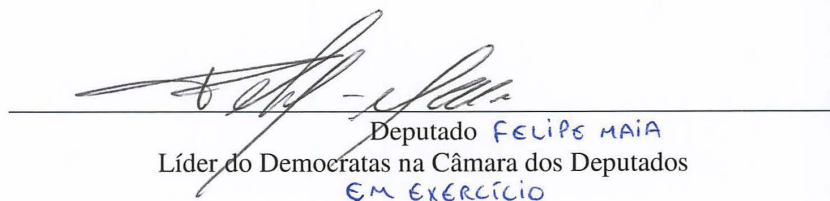 Deputado FELIPE MAIA
Líder do Democratas na Câmara dos Deputados
EM EXERCÍCIO